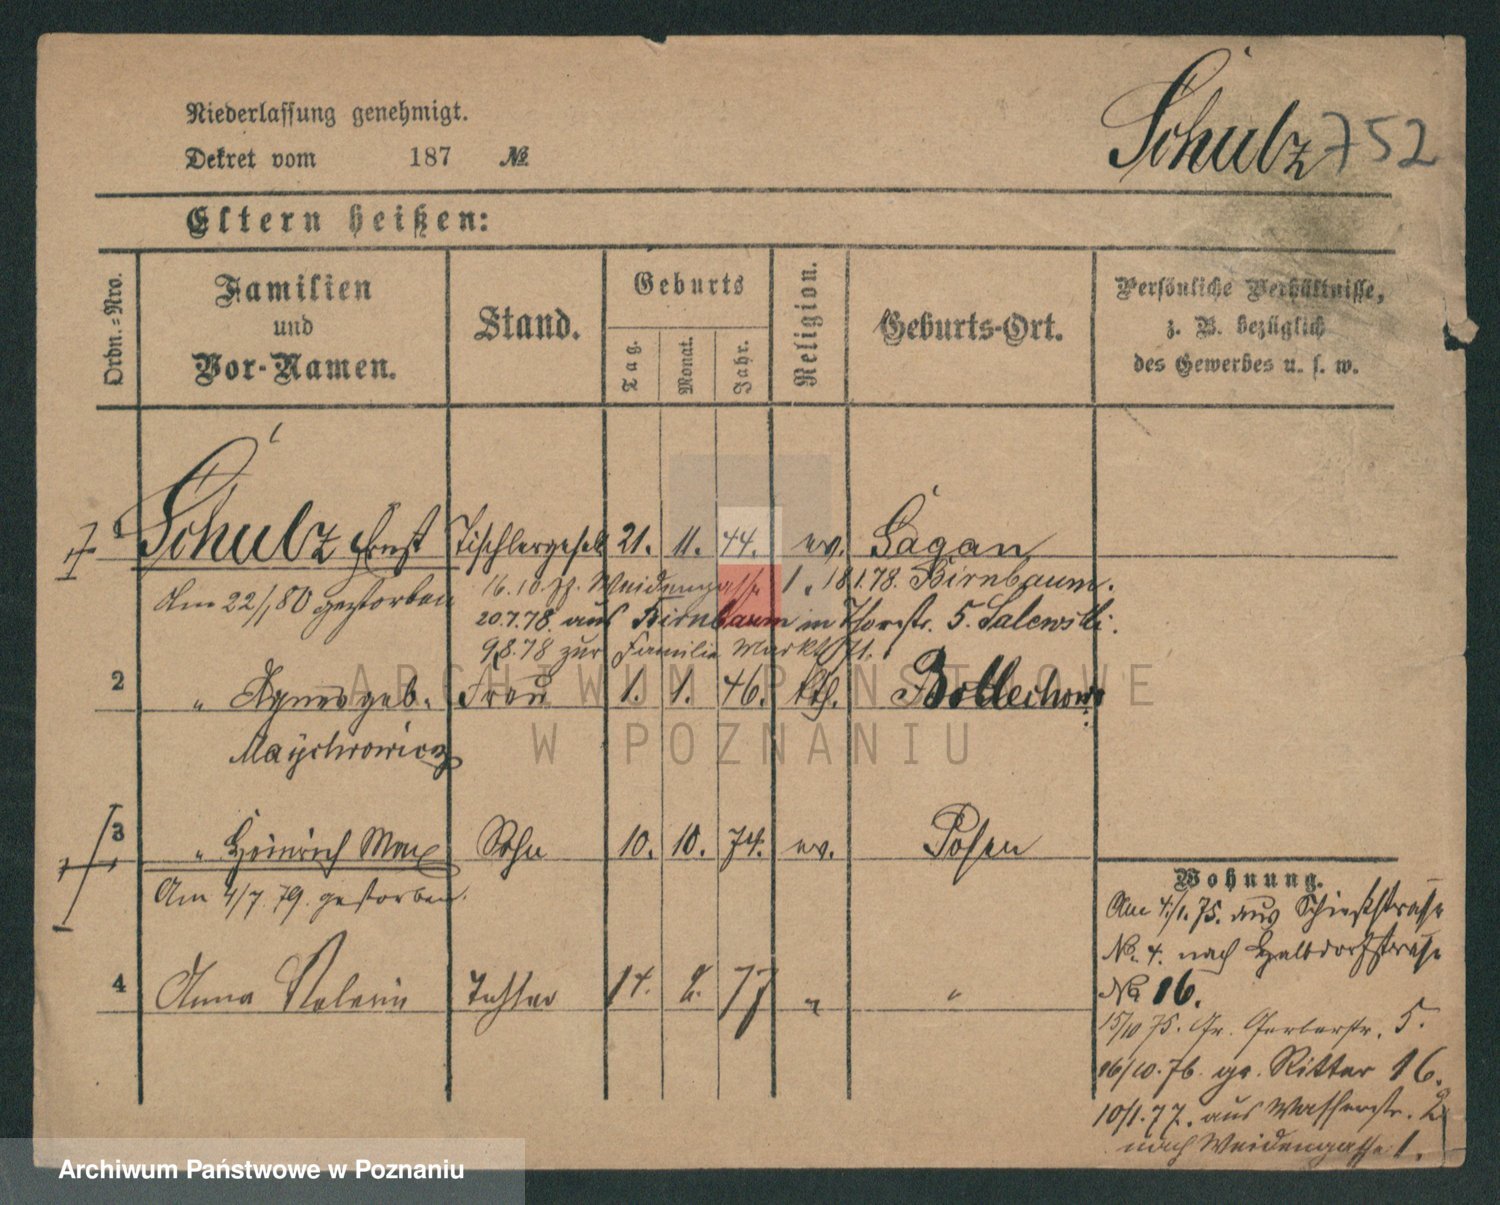 Niederlassung genehmigt.
Dekret vom 187 №
Schulz 752
Eltern heißen:
Ordn.-Nro.
Familien
und
Vor-Namen.
Stand.
Geburts
Tag.
Monat.
Jahr.
Religion.
Geburts-Ort.
Persönliche Verhältnisse,
z. B. bezüglich
des Gewerbes u. s. w.
1 Schulz Ernst Tischlergesell 21. 11. 44. ev. Sagan
Am 22/1 80 gestorben
16. 10. 77. Weidengasse 1. 18.1.78. Birnbaum.
20.7.78. aus Birnbaum in Thorstr. 5. Salewski.
9.8.78 zur Familie Markt 71.
2 " Agnes geb. Frau 1. 1. 46. kth.
3 " Heinrich Max Sohn 10. 10. 74. ev. Posen
Am 4/7. 79. gestorben.
4 Anna Tochter 14. 2. 77 " "
Wohnung.
Am 4/1. 75. aus Schießstrasse
No. 4. nach Halbdorfstrasse
No 16.
15/10 75. Gr. Gerberstr. 5.
16/10. 76. gr. Ritter 16.
10/1. 77. aus Wasserstr. 2
nach Weidengasse 1.
ARCHIWUM PAŃSTWOWE
W POZNANIU
Archiwum Państwowe w Poznaniu